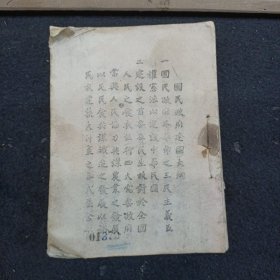 國民政府建國大綱
一國民政府本革命之三民主義五
權憲法以建設中華民國
二建設之首要在民生故對於全國
人民之食衣住行四大需要政府
當與人民協力共謀農業之發展
以足民食共謀織造之發展以裕
民衣建築大計畫之各式屋舍
013